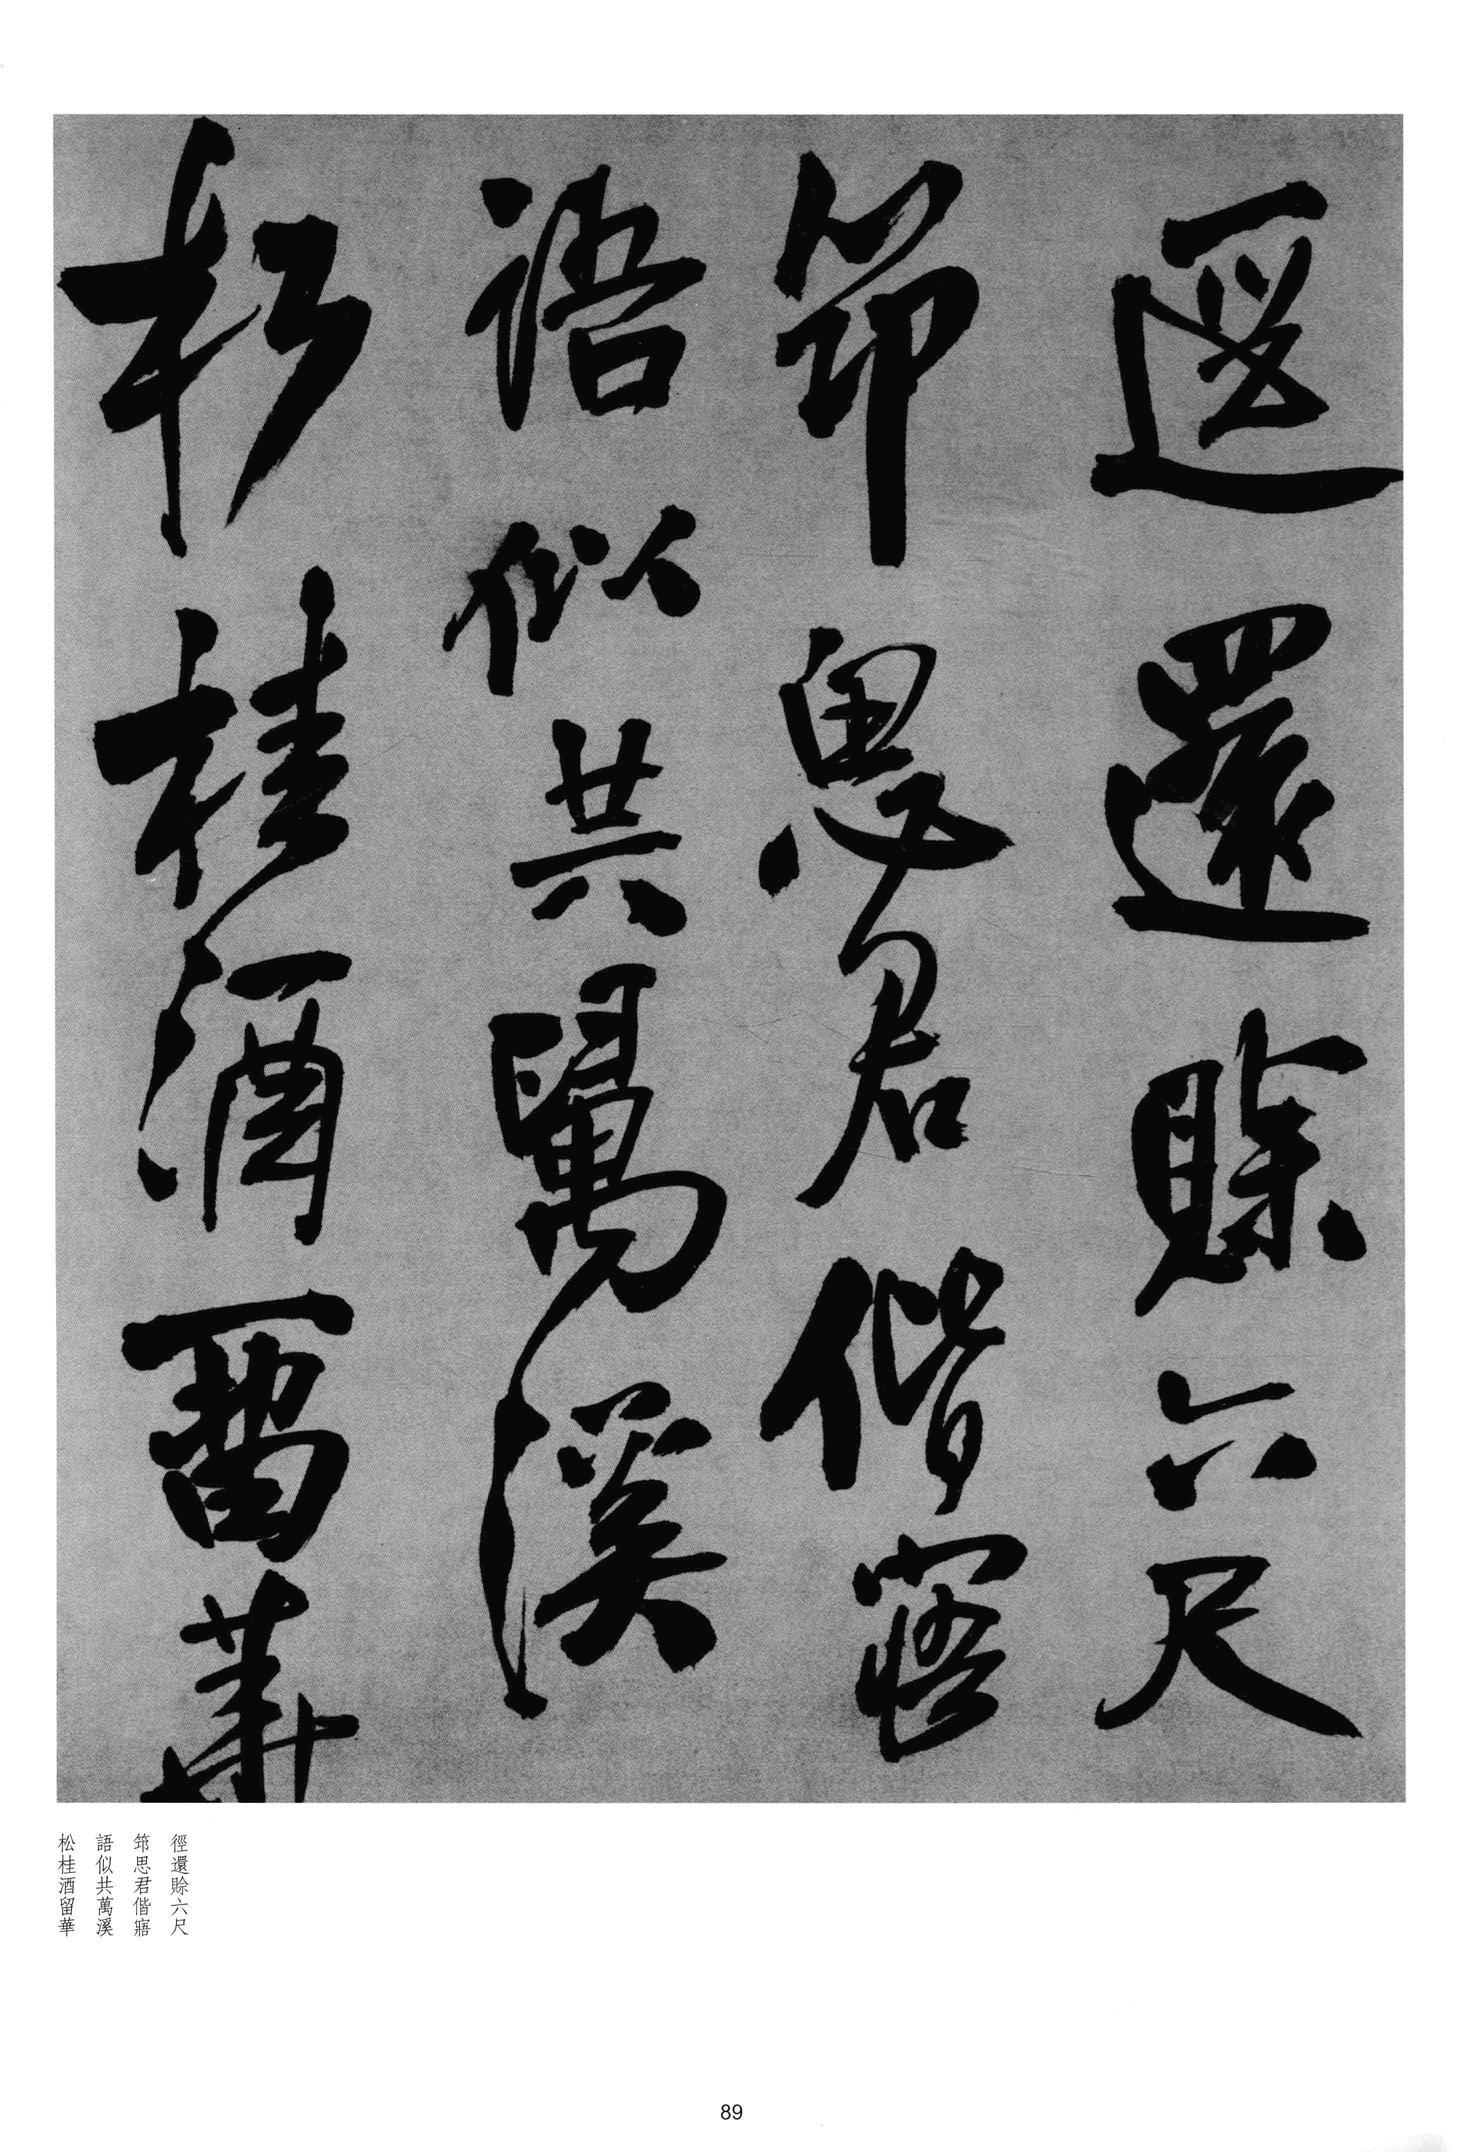 逕還賒六尺
筇思君偕寤
語似共萬溪
松桂酒留華
徑還賒六尺
筇思君偕寤
語似共萬溪
松桂酒留華
89